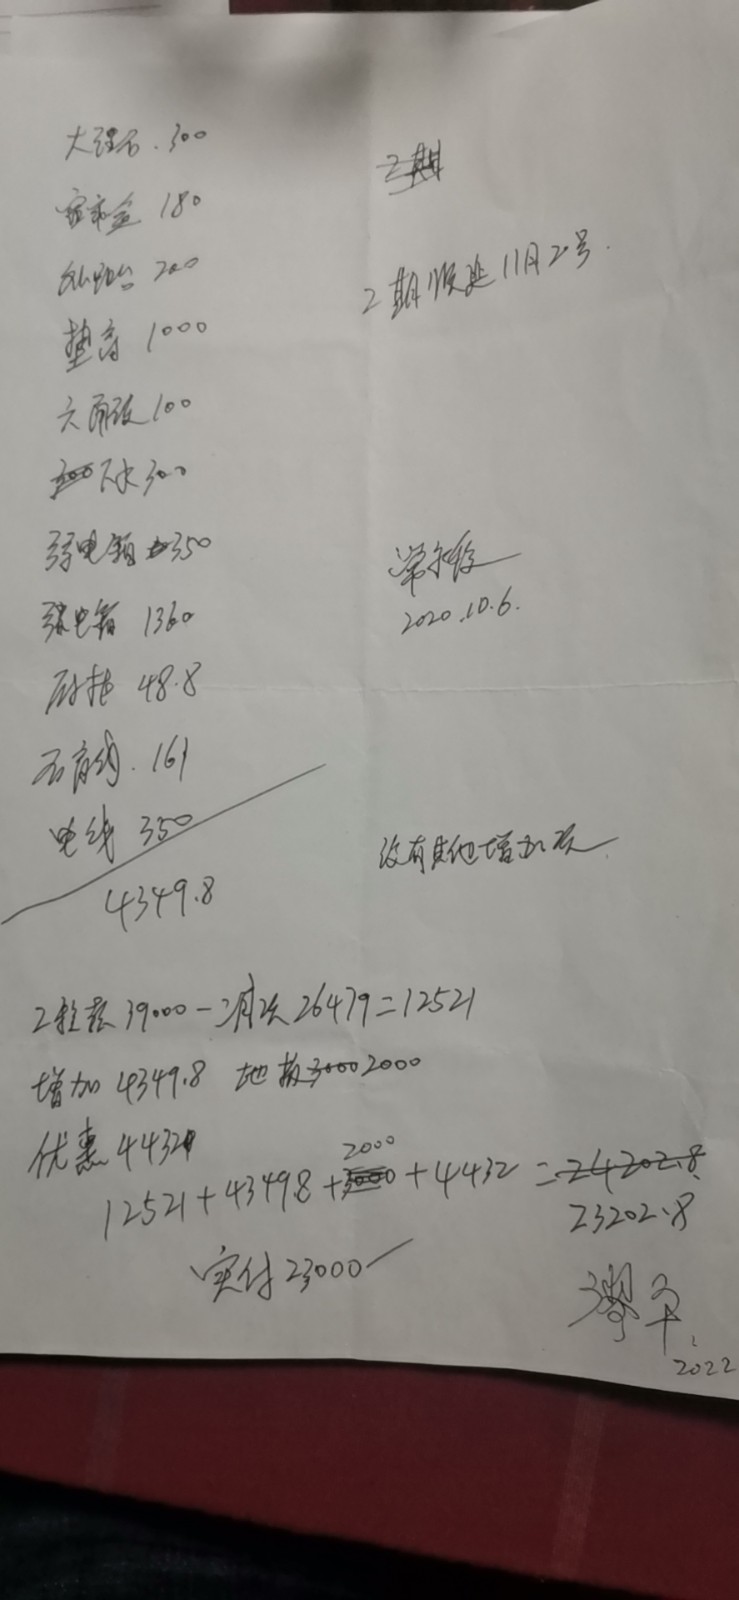 大理石.300
180
200
垫高 1000
100
下水300
弱电箱 350
强电箱 1360
48.8
石膏线.161
电线 350
4349.8
2期
2期顺延11月2号.
2020.10.6.
没有其他增加项
39000-26479=12521
增加4349.8 地 3000 2000
优惠4432
2000
12521+4349.8+3000+4432=24202.8
23202.8
实付23000
2022